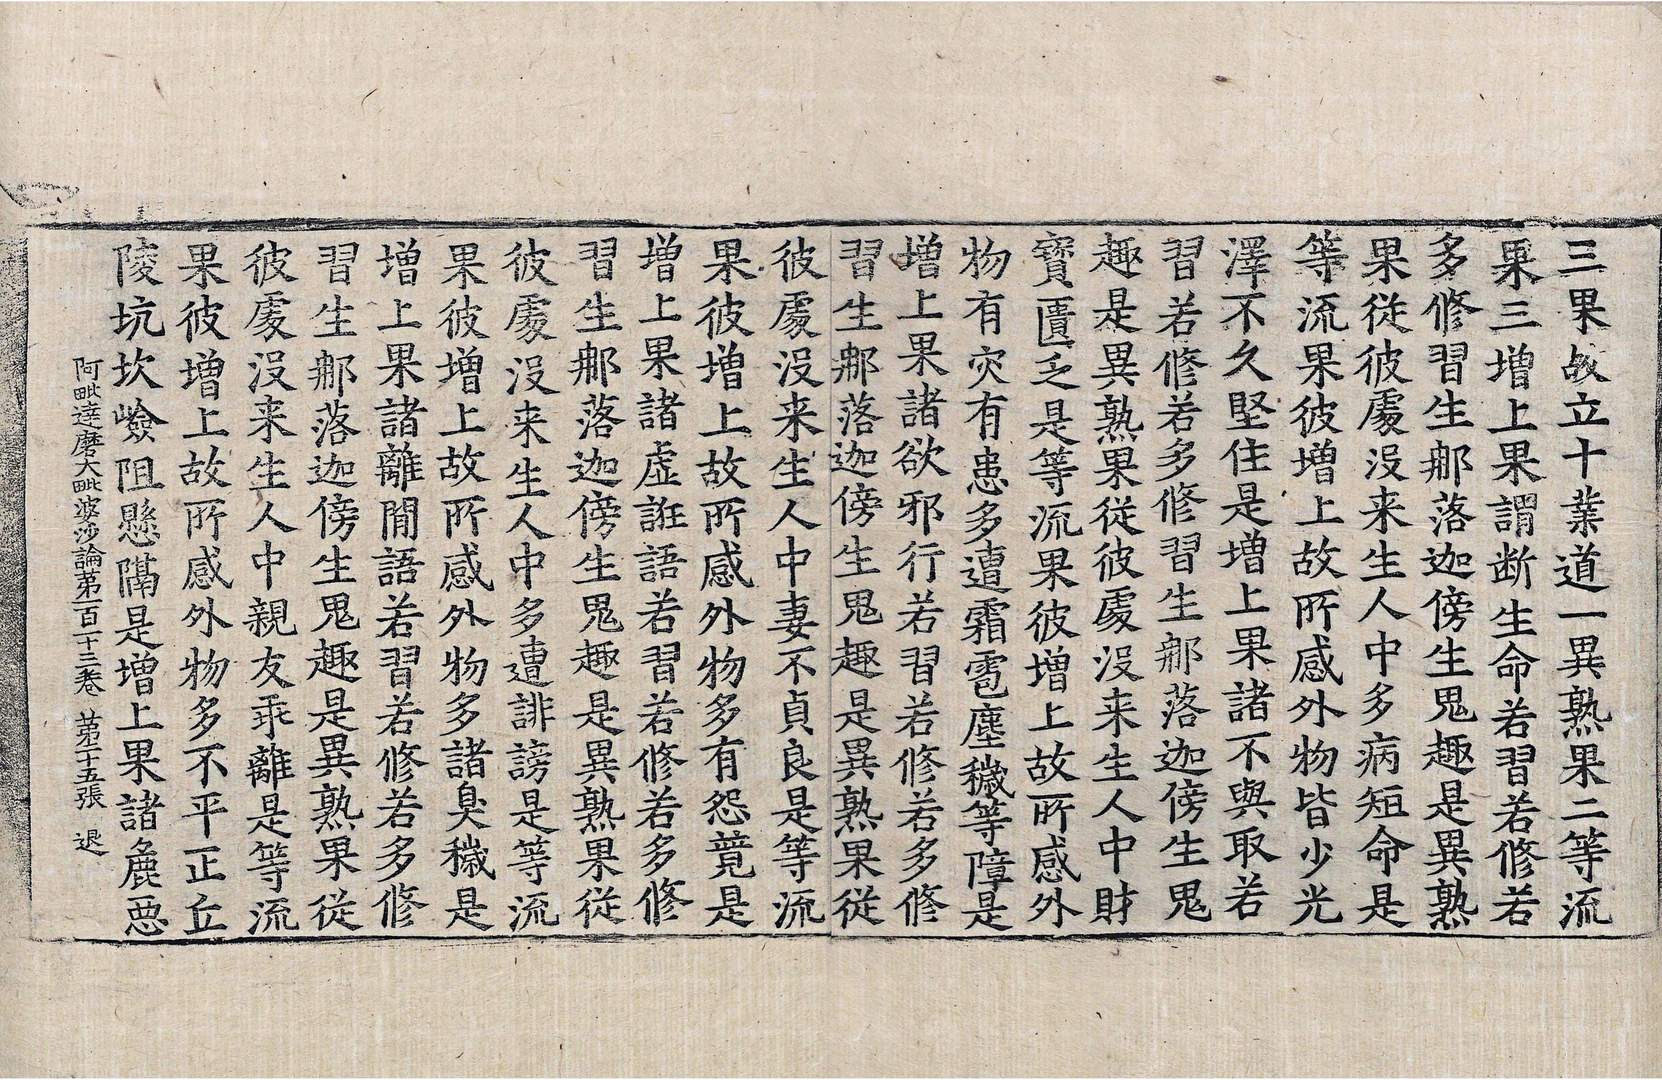 三果故立十業道一異熟果二等流
果三增上果謂断生命若習若修若
多修習生那落迦傍生鬼趣是異熟
果從彼處沒来生人中多病短命是
等流果彼增上故所感外物皆少光
澤不久堅住是增上果諸不與取若
習若修若多修習生那落迦傍生鬼
趣是異熟果從彼處沒来生人中財
寶匱乏是等流果彼增上故所感外
物有灾有患多遭霜雹塵穢等障是
增上果諸欲邪行若習若修若多修
習生那落迦傍生鬼趣是異熟果從
彼處沒来生人中妻不貞良是等流
果彼增上故所感外物多有怨競是
增上果諸虛誑語若習若修若多修
習生那落迦傍生鬼趣是異熟果從
彼處沒来生人中多遭誹謗是等流
果彼增上故所感外物多諸臭穢是
增上果諸離間語若習若修若多修
習生那落迦傍生鬼趣是異熟果從
彼處沒来生人中親友乖離是等流
果彼增上故所感外物多不平正丘
陵坑坎嶮阻懸隔是增上果諸麁惡
阿毗達磨大毗婆沙論第一百一十三卷 第十五張 退